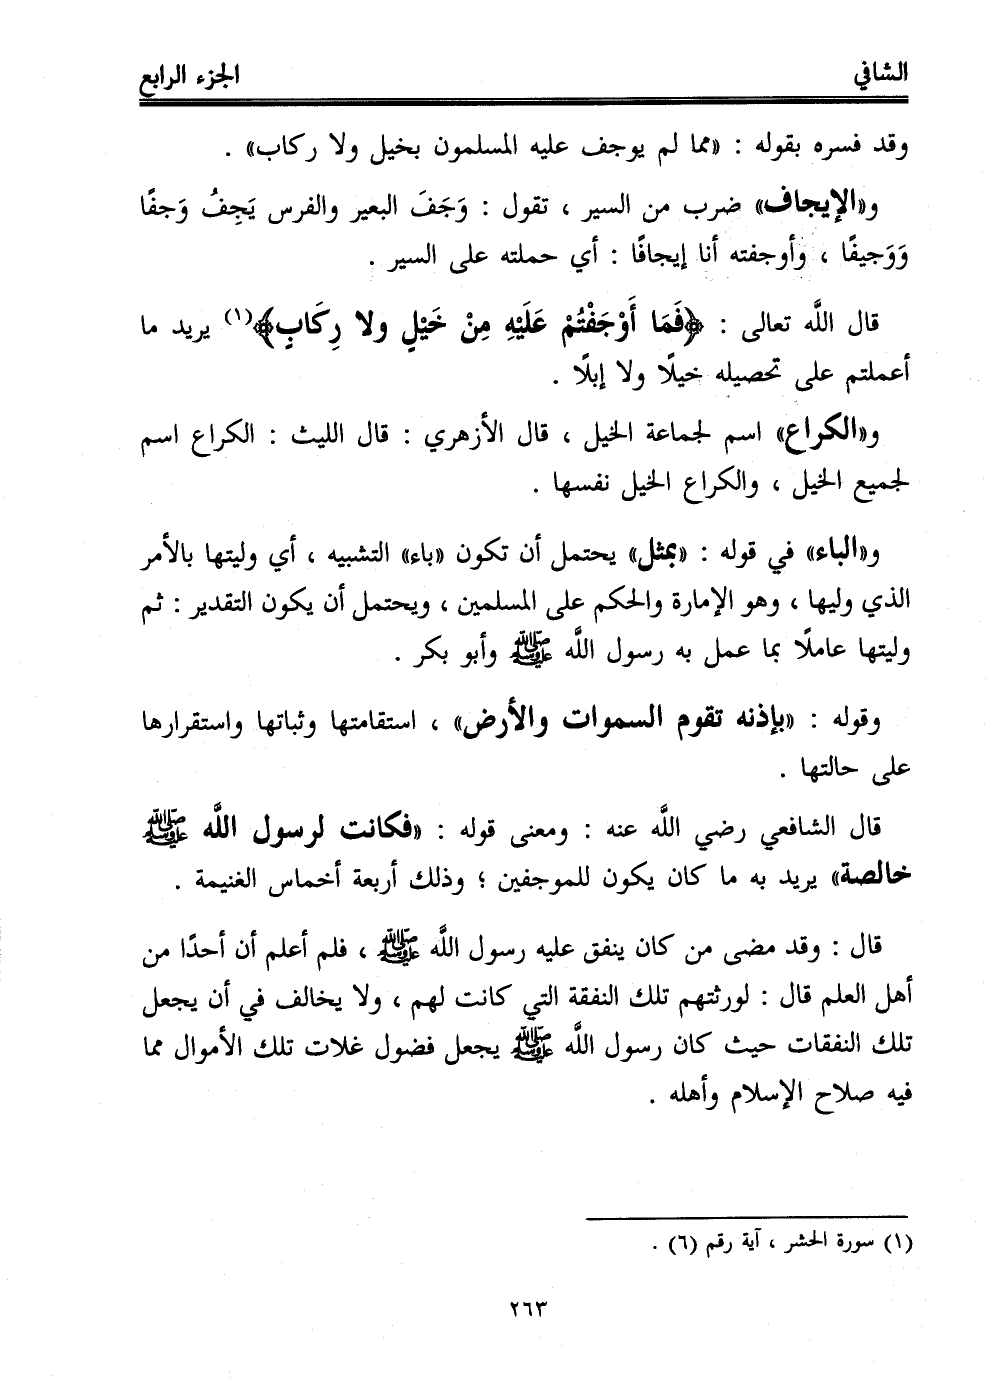 الشافي
الجزء الرابع
وقد فسره بقوله : «مما لم يوجف عليه المسلمون بخيل ولا ركاب» .
و«الإيجاف» ضرب من السير ، تقول : وَجَفَ البعير والفرس يَجِفُ وَجفًا
وَوَجيفًا ، وأوجفته أنا إيجافًا : أي حملته على السير .
قال اللَّه تعالى : ﴿فَمَا أَوْجَفْتُمْ عَلَيْهِ مِنْ خَيْلٍ ولا رِكَابٍ﴾(١) يريد ما
أعملتم على تحصيله خيلًا ولا إبلًا .
و«الكراع» اسم لجماعة الخيل ، قال الأزهري : قال الليث : الكراع اسم
لجميع الخيل ، والكراع الخيل نفسها .
و«الباء» في قوله : «بمثل» يحتمل أن تكون «باء» التشبيه ، أي وليتها بالأمر
الذي وليها ، وهو الإمارة والحكم على المسلمين ، ويحتمل أن يكون التقدير : ثم
وليتها عاملًا بما عمل به رسول اللَّه ﷺ وأبو بكر .
وقوله : «بإذنه تقوم السموات والأرض» ، استقامتها وثباتها واستقرارها
على حالتها .
قال الشافعي رضي اللَّه عنه : ومعنى قوله : «فكانت لرسول اللَّه ﷺ
خالصة» يريد به ما كان يكون للموجفين ؛ وذلك أربعة أخماس الغنيمة .
قال : وقد مضى من كان ينفق عليه رسول اللَّه ﷺ ، فلم أعلم أن أحدًا من
أهل العلم قال : لورثتهم تلك النفقة التي كانت لهم ، ولا يخالف في أن يجعل
تلك النفقات حيث كان رسول اللَّه ﷺ يجعل فضول غلات تلك الأموال مما
فيه صلاح الإسلام وأهله .
(١) سورة الحشر ، آية رقم (٦) .
٢٦٣